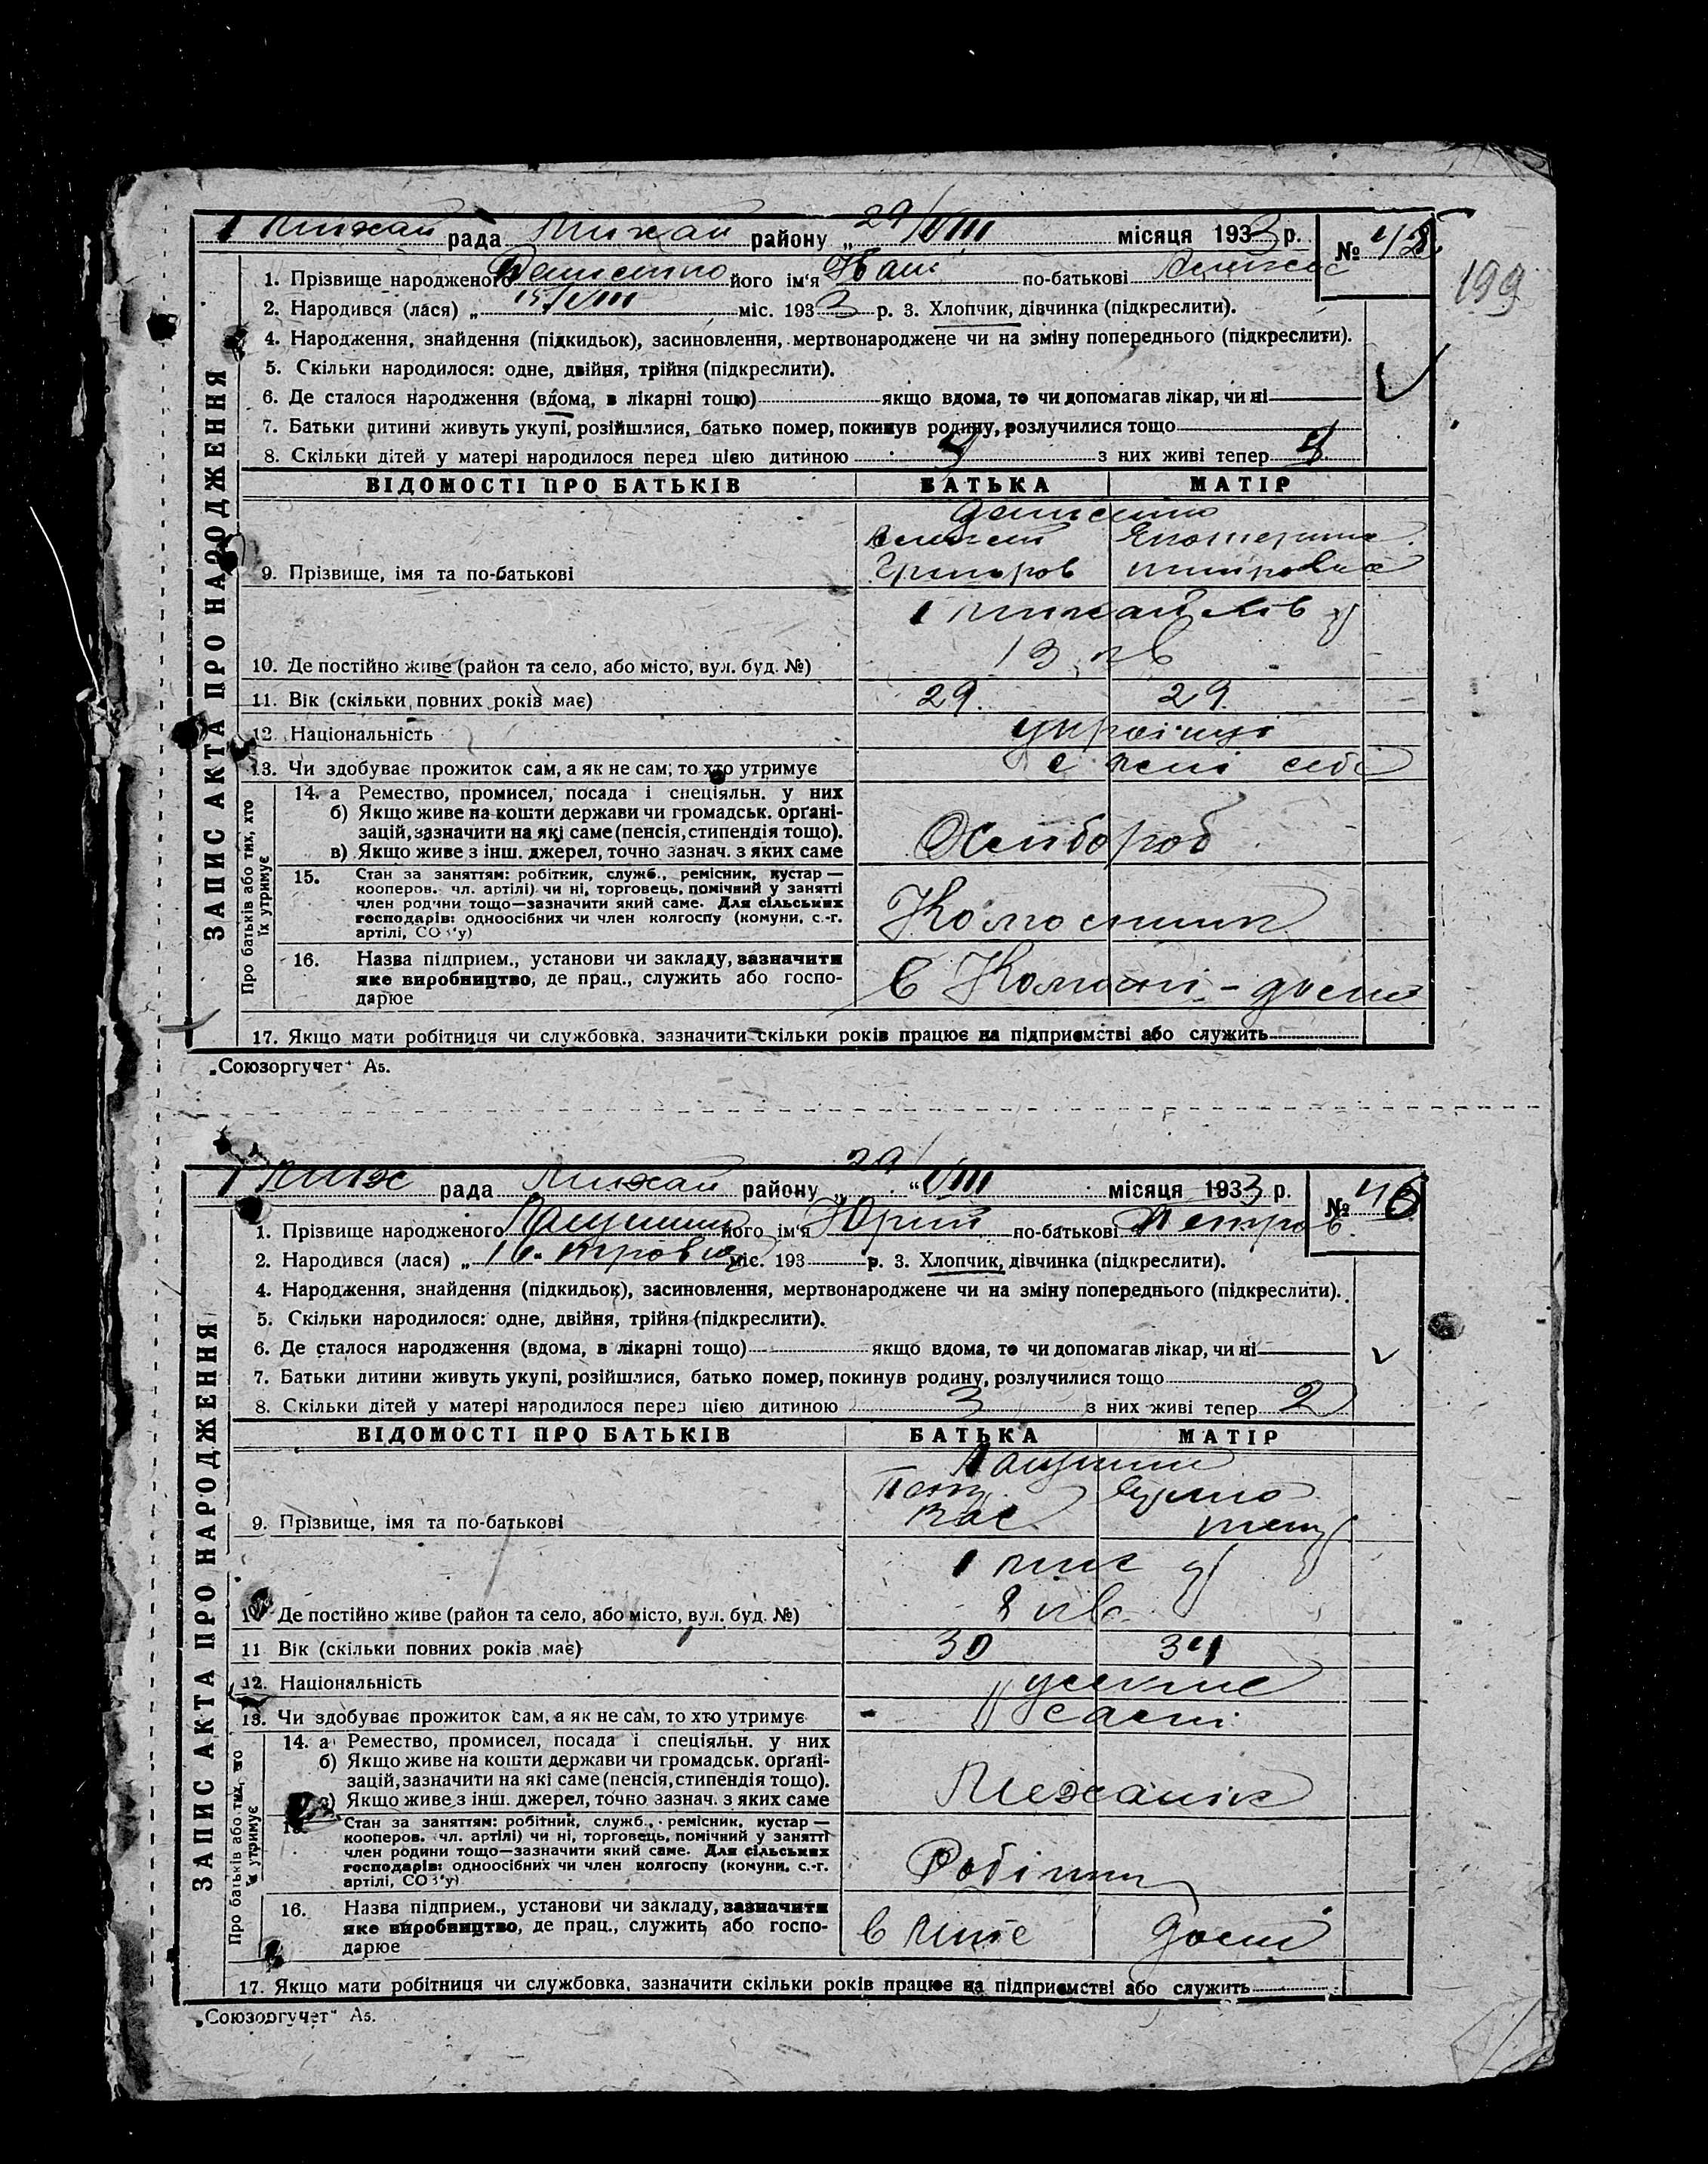 1 Михай рада Михай району „29/VIII місяця 1933 р. №
199
1. Прізвище народженого його ім'я Іван по-батькові
2. Народився (лася) „15/VIII міс. 1933 р. 3. Хлопчик, дівчинка (підкреслити).
4. Народження, знайдення (підкидьок), засиновлення, мертвонароджене чи на зміну попереднього (підкреслити).
5. Скільки народилося: одне, двійня, трійня (підкреслити).
6. Де сталося народження (вдома, в лікарні тощо) якщо вдома, то чи допомагав лікар, чи ні
7. Батьки дитини живуть укупі, розійшлися, батько помер, покинув родину, розлучилися тощо
8. Скільки дітей у матері народилося перед цією дитиною 4 з них живі тепер 4
ЗАПИС АКТА ПРО НАРОДЖЕННЯ
ВІДОМОСТІ ПРО БАТЬКІВ БАТЬКА МАТІР
Екатерина
9. Прізвище, імя та по-батькові Григоров
1 Михайлів
13
10. Де постійно живе (район та село, або місто, вул. буд. №)
11. Вік (скільки повних років має) 29. 29.
12. Національність українці
13. Чи здобуває прожиток сам, а як не сам, то хто утримує
Про батьків або тих, хто їх утримує
14. а Ремество, промисел, посада і спеціяльн. у них
б) Якщо живе на кошти держави чи громадськ. орґані-
зацій, зазначити на які саме (пенсія, стипендія тощо).
в) Якщо живе з інш. джерел, точно зазнач. з яких саме
Хлибороб
15. Стан за заняттям: робітник, служб., ремісник, кустар —
кооперов. чл. артілі) чи ні, торговець, помічний у занятті
член родини тощо—зазначити який саме. Для сільських
господарів: одноосібних чи член колгоспу (комуни, с.-г.
артілі, СОЗ'у)
16. Назва підприєм., установи чи закладу, зазначити
яке виробництво, де прац., служить або госпо-
дарює
17. Якщо мати робітниця чи службовка, зазначити скільки років працює на підприємстві або служить
„Союзоргучет“ А5.
1 Мих рада Михай району „29“ VIII місяця 1933 р. № 46
1. Прізвище народженого його ім'я Юрій по-батькові Петров
2. Народився (лася) „16. міс. 193 р. 3. Хлопчик, дівчинка (підкреслити).
4. Народження, знайдення (підкидьок), засиновлення, мертвонароджене чи на зміну попереднього (підкреслити).
5. Скільки народилося: одне, двійня, трійня (підкреслити).
6. Де сталося народження (вдома, в лікарні тощо) якщо вдома, то чи допомагав лікар, чи ні
7. Батьки дитини живуть укупі, розійшлися, батько помер, покинув родину, розлучилися тощо
8. Скільки дітей у матері народилося перед цією дитиною 3 з них живі тепер 2
ЗАПИС АКТА ПРО НАРОДЖЕННЯ
ВІДОМОСТІ ПРО БАТЬКІВ БАТЬКА МАТІР
9. Прізвище, імя та по-батькові Вас
10. Де постійно живе (район та село, або місто, вул. буд. №)
11 Вік (скільки повних років має) 30 34
12. Національність
13. Чи здобуває прожиток сам, а як не сам, то хто утримує самі
Про батьків або тих, хто їх утримує
14. а Ремество, промисел, посада і спеціяльн. у них
б) Якщо живе на кошти держави чи громадськ. орґані-
зацій, зазначити на які саме (пенсія, стипендія тощо).
в) Якщо живе з інш. джерел, точно зазнач. з яких саме
Механік
15. Стан за заняттям: робітник, служб., ремісник, кустар —
кооперов. чл. артілі) чи ні, торговець, помічний у занятті
член родини тощо—зазначити який саме. Для сільських
господарів: одноосібних чи член колгоспу (комуни, с.-г.
артілі, СОЗ'у)
16. Назва підприєм., установи чи закладу, зазначити
яке виробництво, де прац., служить або госпо-
дарює
17. Якщо мати робітниця чи службовка, зазначити скільки років працює на підприємстві або служить
„Союзоргучет“ А5.